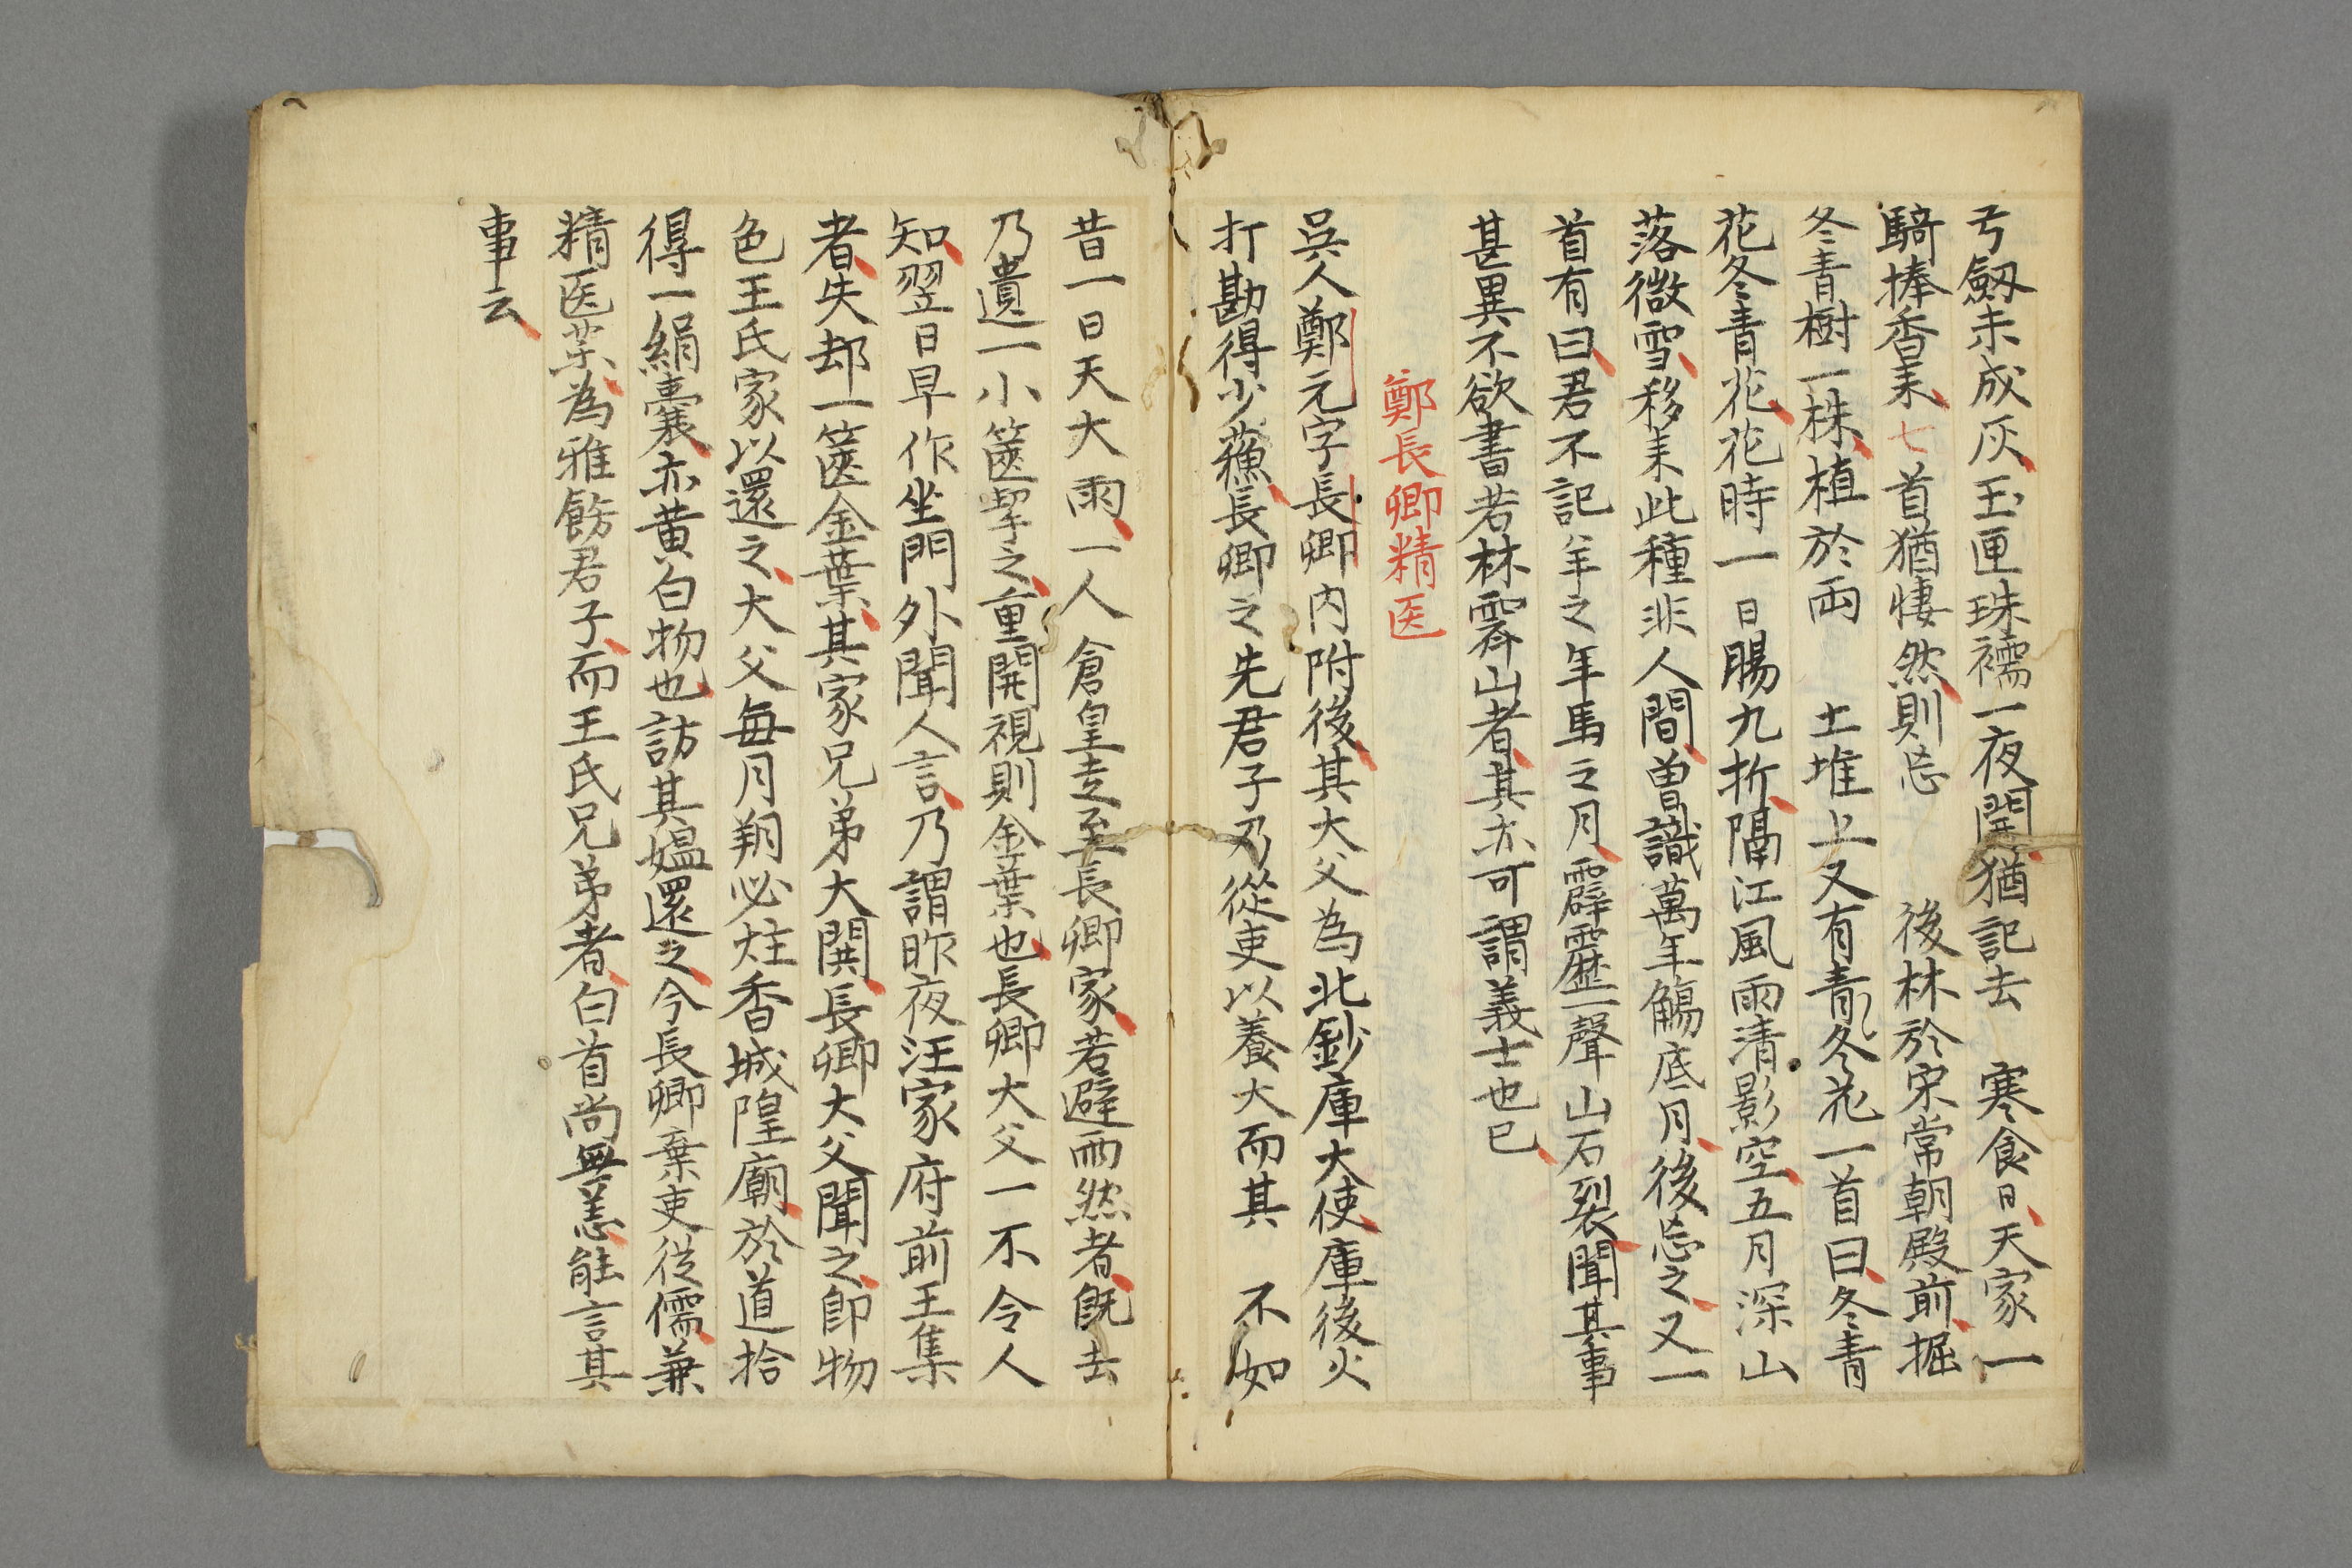 弓劔未成灰玉匣珠襦一夜開猶記去 寒食日天家一
騎捧香来七首猶悽然則忘 後林於宋常朝殿前掘
冬青樹一株植於両 土堆上又有青冬花一首曰冬青
花冬青花花時一日賜九折隔江風雨清影空五月深山
落微雪移来此種非人間曽識萬年觴底月後忘之又一
首有曰君不記羊之年馬之月霹靂一聲山石裂聞其事
甚異不欲書若林霽山者其亦可謂義士也已
鄭長卿精医
呉人鄭元字長卿内附後其大父為北鈔庫大使庫後火
打勘得少蘓長卿之先君子乃從吏以養大而其 不如
昔一日天大雨一人倉皇走至長卿家若避雨然者旣去
乃遺一小篋挈之重開視則金葉也長卿大父一不令人
知翌日早作坐門外聞人言乃謂昨夜汪家府前王集
者失却一篋金葉其家兄弟大鬨長卿大父聞之卽物
色王氏家以還之大父毎月朔必炷香城隍廟於道拾
得一絹囊亦黄白物也訪其媼還之今長卿棄吏從儒兼
精医業為雅餝君子而王氏兄弟者白首尚無恙能言其
事云